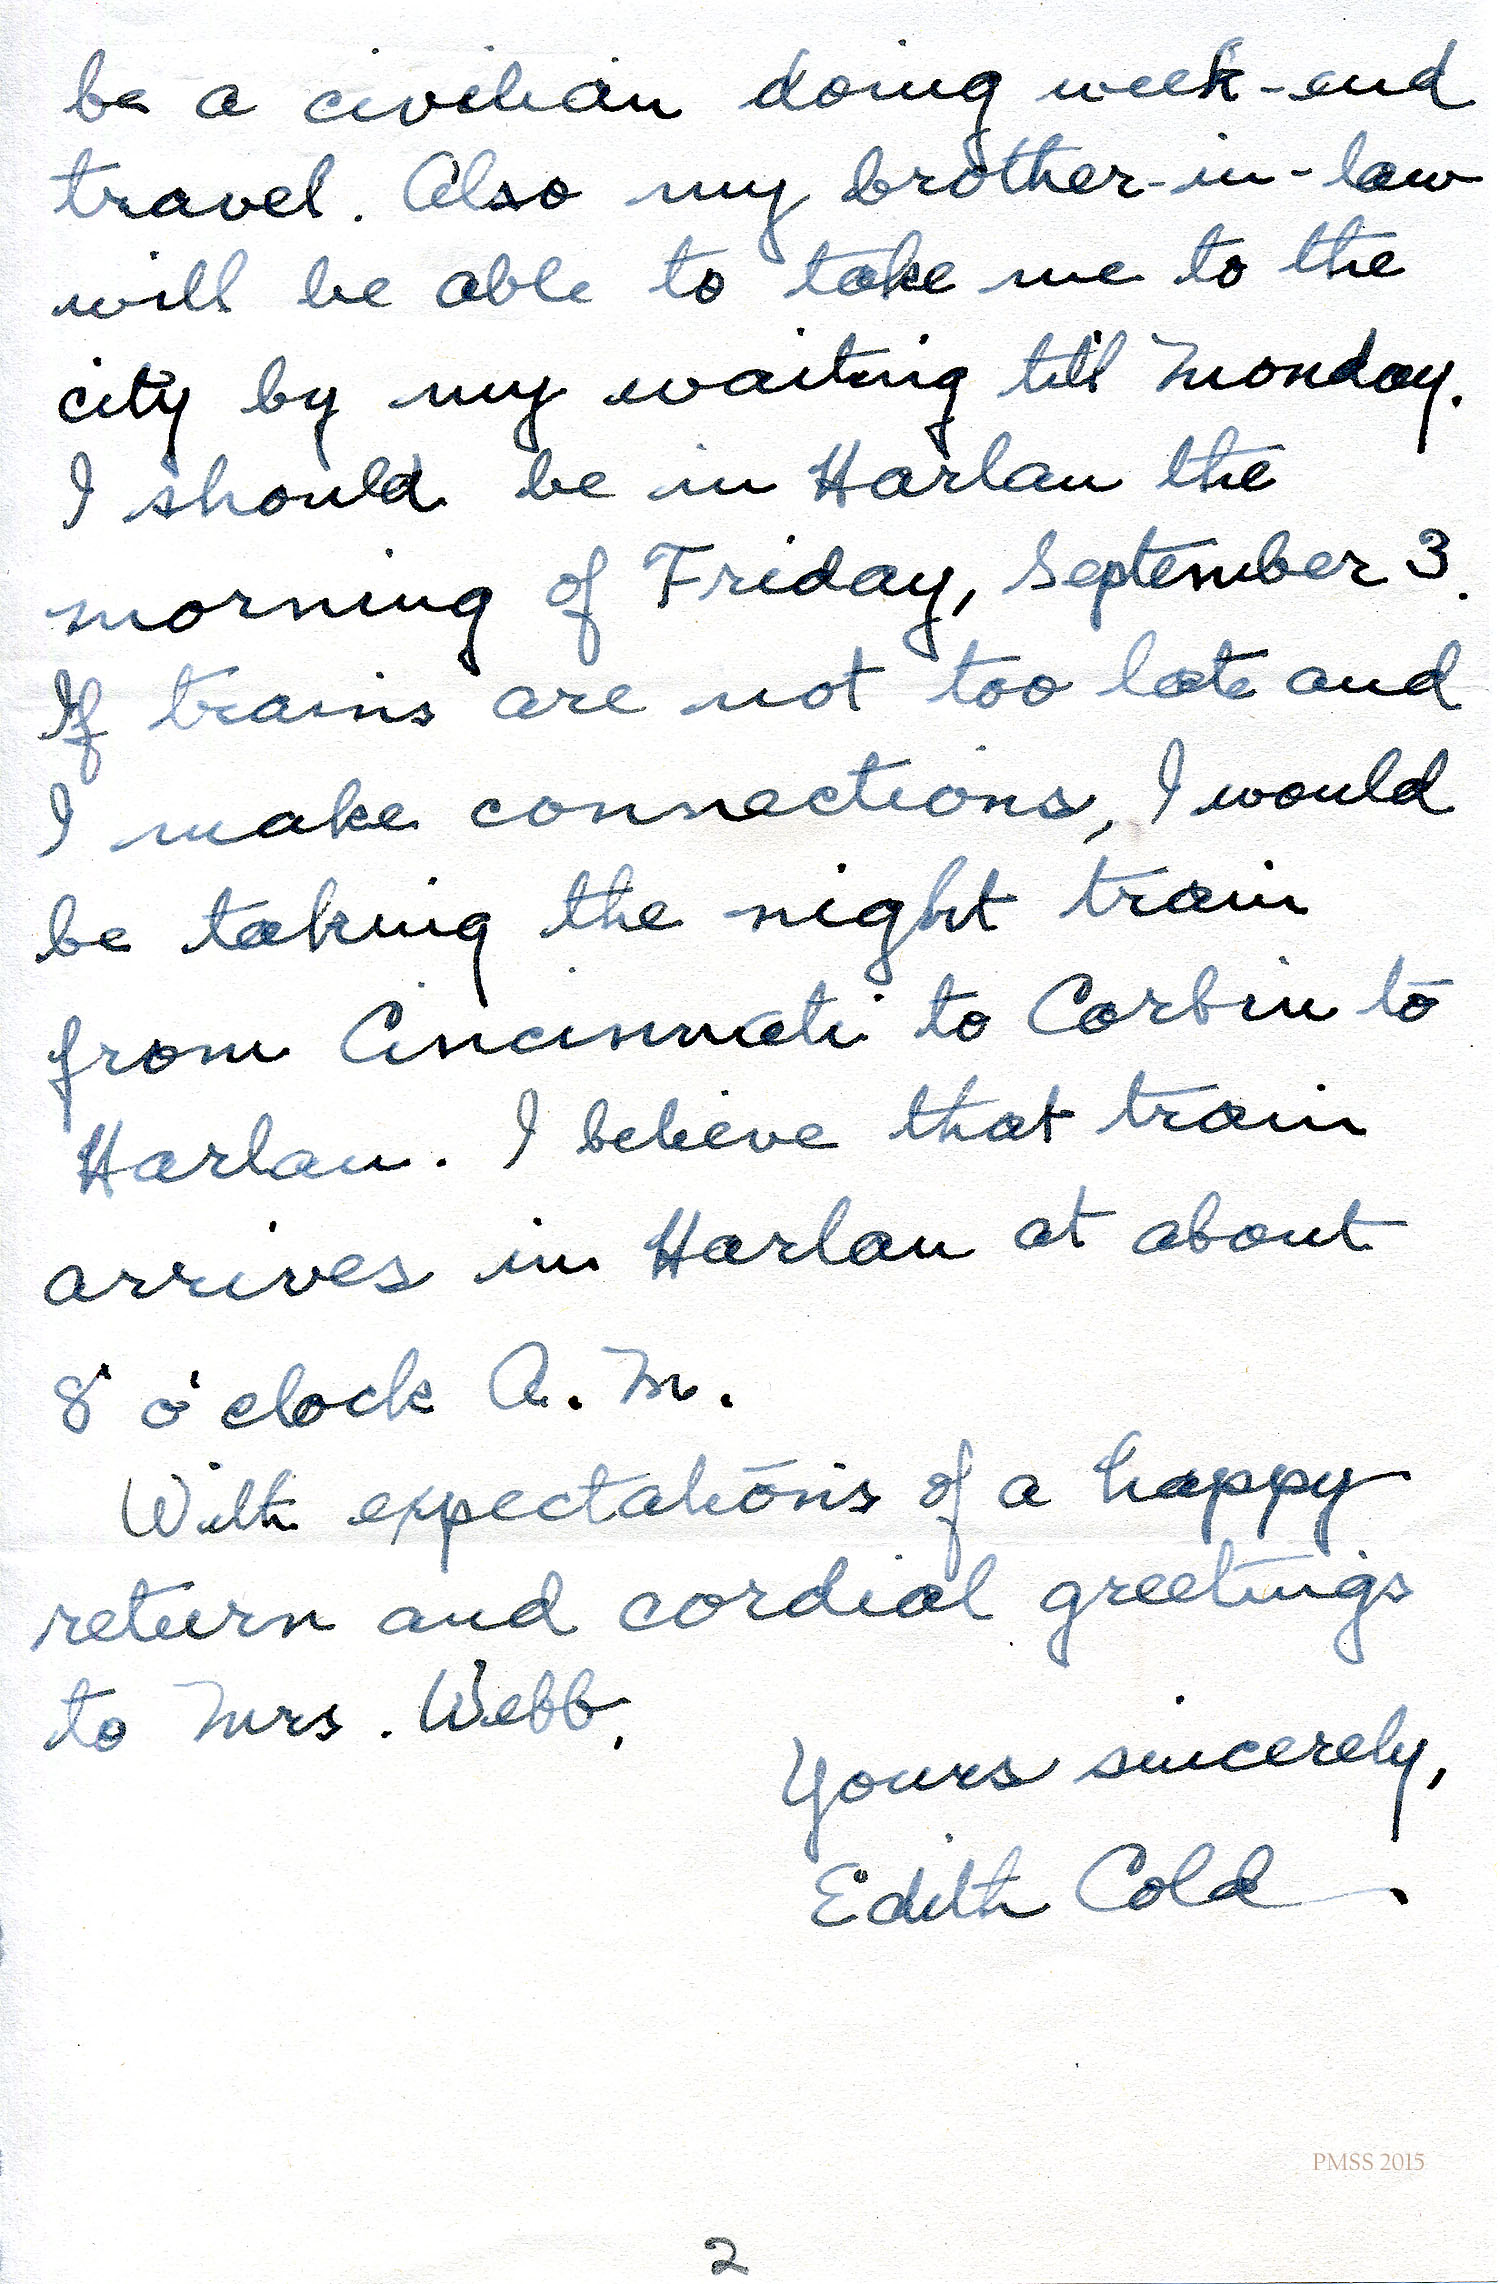 be a civilian doing week-end
travel. Also my brother-in-law
will be able to take me to the
city by my waiting till Monday.
I should be in Harlan the
morning of Friday, September 3.
If trains are not too late and
I make connections, I would
be taking the night train
from Cincinnati to Corbin to
Harlan. I believe that train
arrives in Harlan at about
8 o'clock A. M.
With expectations of a happy
return and cordial greetings
to Mrs. Webb,
Yours sincerely,
Edith Cold
PMSS 2015
2